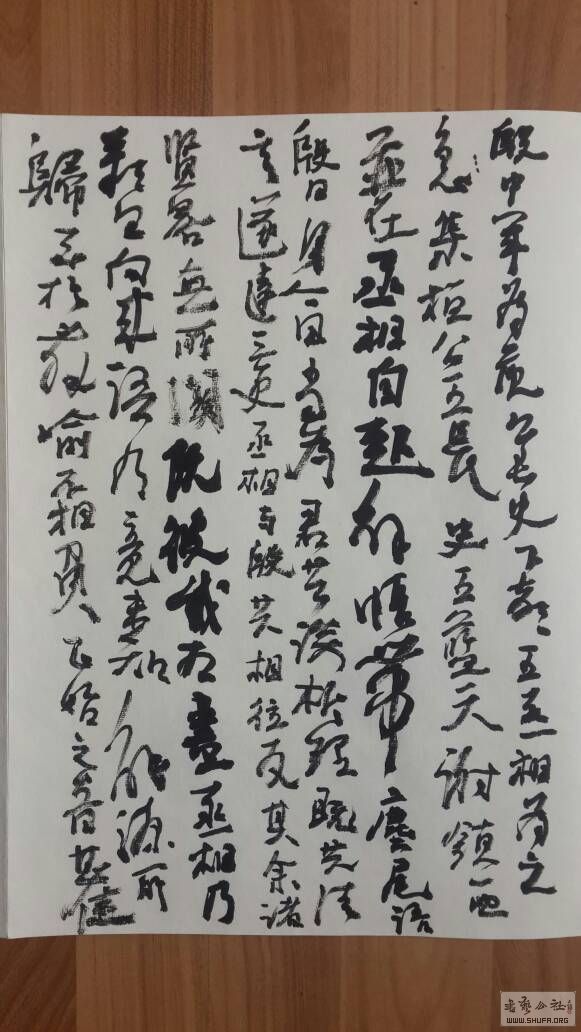 殷中军为庾公长史下都王丞相为之
集桓公王長史王藍田谢镇西
並在丞相自起解帶麈尾语
殷曰身今日當为君共談析理既共清
言遂達三更丞相与殷共相往反其余诸
贤略無所関既彼我相盡丞相乃
歎曰向来語乃竟未知源所
歸至於辞喻不相負正始之音
书艺公社
WWW.SHUFA.ORG